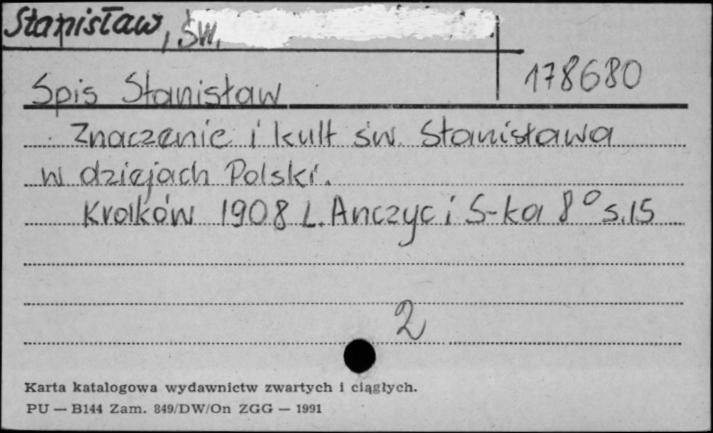 Stanisław, św.
178680
Spis Stanisław
Znaczenie i kult św. Stanisława
w dziejach Polski.
Kraków 1908 L. Anczyc i S-ka 8° s.15
2
Karta katalogowa wydawnictw zwartych i ciągłych.
PU — B144 Zam. 849/DW/On ZGG — 1991